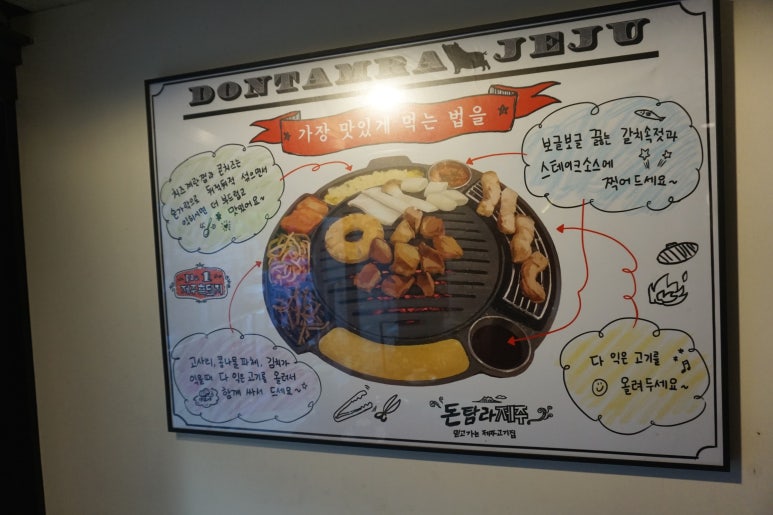 DONTAMRA JEJU
가장 맛있게 먹는 법을
치즈계란찜과 콘치즈는
숟가락으로 뒤적뒤적 섞으면서
익히시면 더 부드럽고
맛있어요~
보글보글 끓는 갈치속젓과
스테이크소스에
찍어드세요~
No.1
제주흑돼지
고사리, 콩나물파채, 김치가
익을때 다 익은 고기를 올려서
함께 싸서 드세요~
다 익은 고기를
올려두세요~
돈탐라제주
믿고가는 제주고기집